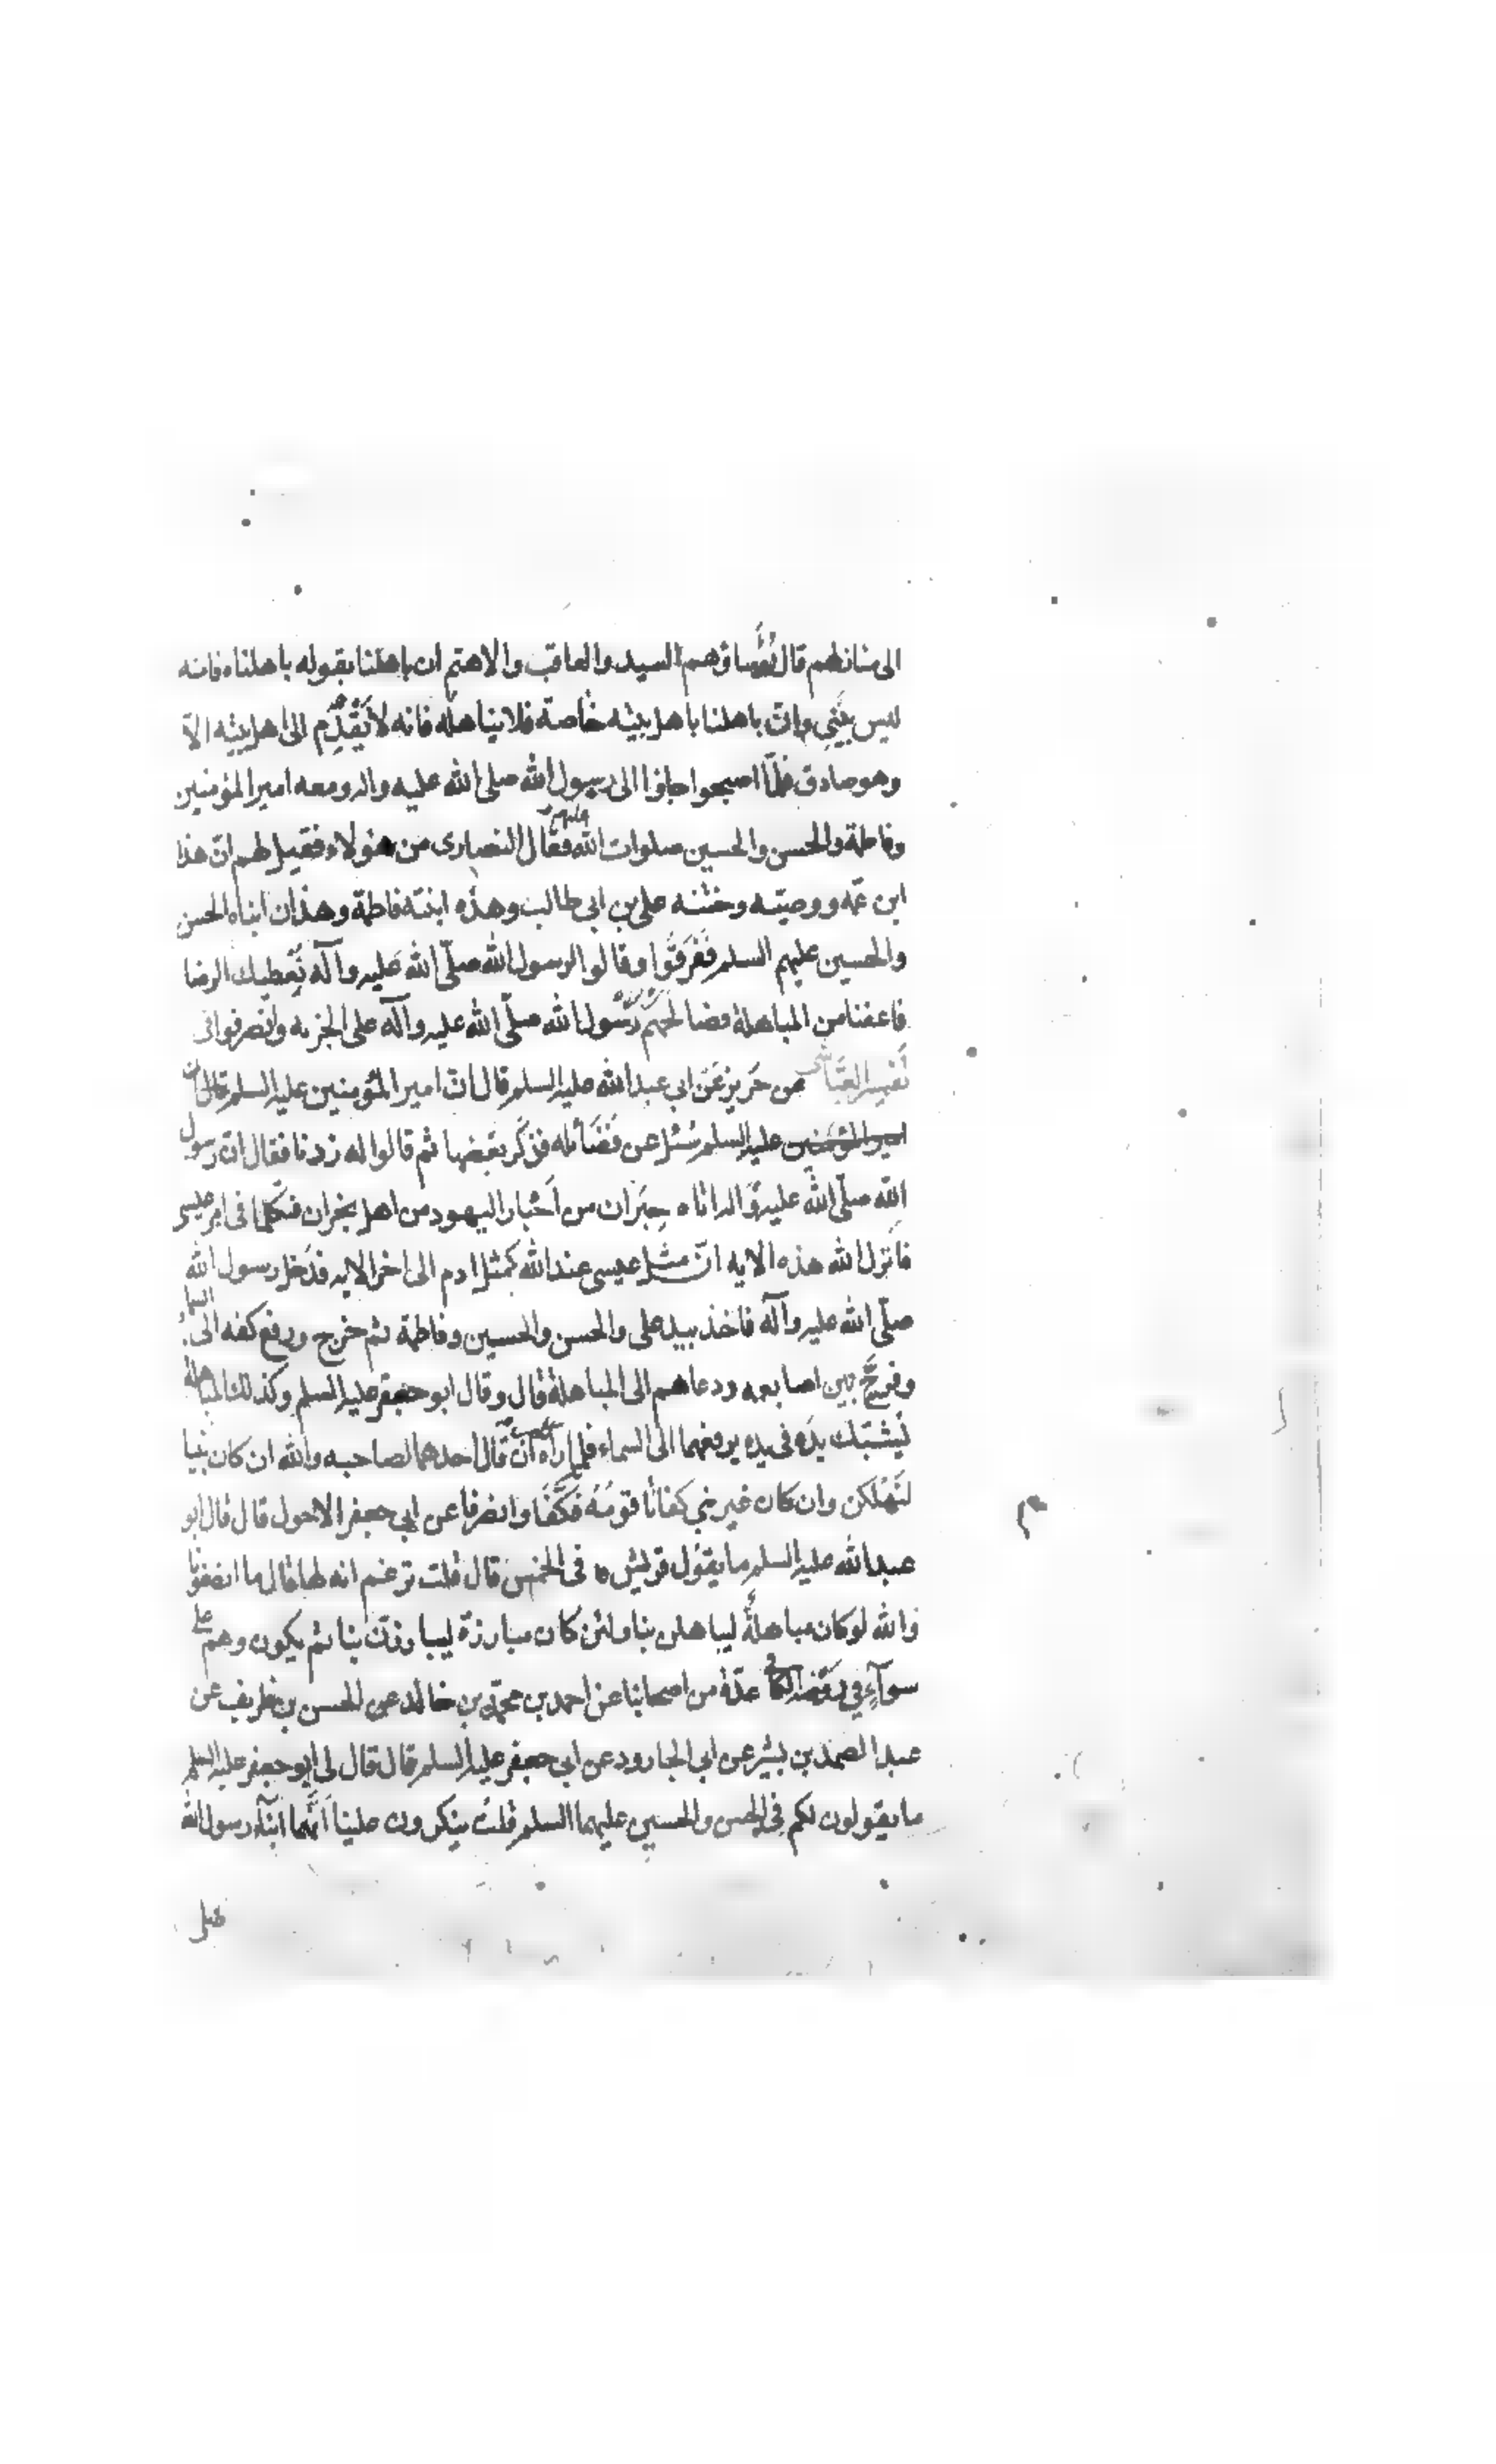 الى منازلهم قال رؤساؤهم السيد والعاقب والاهتم ان باهلنا بقوله باهلناه فانه
ليس بنبي وان باهلنا باهل بيته خاصة فلا نباهله فانه لا يقدم الى اهل بيته الا
وهو صادق فلما اصبحوا جاؤا الى رسول الله صلى الله عليه واله ومعه امير المؤمنين
وفاطمة والحسن والحسين صلوات الله عليهم فقال النصارى من هؤلاء فقيل لهم ان هذا
ابن عمه ووصيه وختنه على بن ابى طالب وهذه ابنته فاطمة وهذان ابناه الحسن
والحسين عليهم السلم ففرقوا وقالوا لرسول الله صلى الله عليه وآله نعطيك الرضا
فاعفنا من المباهلة فصالحهم رسول الله صلى الله عليه وآله على الجزية وانصرفوا فى
تفسير العياشى عن حريز عن ابى عبد الله عليه السلم قال ان امير المؤمنين عليه السلم قال ان
امير المؤمنين عليه السلم سئل عن فضائله فذكر بعضها ثم قالوا له زدنا فقال ان رسول
الله صلى الله عليه واله اتاه حبران من احبار اليهود من اهل نجران فتكلما فى امر عيسى
فانزل الله هذه الايه ان مثل عيسى عند الله كمثل ادم الى اخر الايه فدخل رسول الله
صلى الله عليه وآله فاخذ بيد على والحسن والحسين وفاطمة ثم خرج ورفع كفه الى السماء
وفرج بين اصابعه ودعاهم الى المباهلة قال وقال ابو جعفر عليه السلم وكذلك المباهلة
يشبك يده فى يده يرفعهما الى السماء فلما راه قال احدهما لصاحبه والله ان كان نبيا
لنهلكن وان كان غير نبي كفانا قومه فكفا وانصرفا عن ابى جعفر الاحول قال قال ابو
عبد الله عليه السلم ما يقول قريش فى الخمس قال قلت تزعم انه لها قال ما انصفونا
والله لو كان مباهلة ليباهلن بنا ولئن كان مبارزة ليبارزن بنا ثم يكون وهم على
سوآء في روضة الكافى عدة من اصحابنا عن احمد بن محمد بن خالد عن الحسن بن ظريف عن
عبد الصمد بن بشير عن ابى الجارود عن ابى جعفر عليه السلم قال قال لى ابو جعفر عليه السلم
ما يقولون لكم فى الحسن والحسين عليهما السلم قلت ينكرون علينا انهما ابنا رسول الله